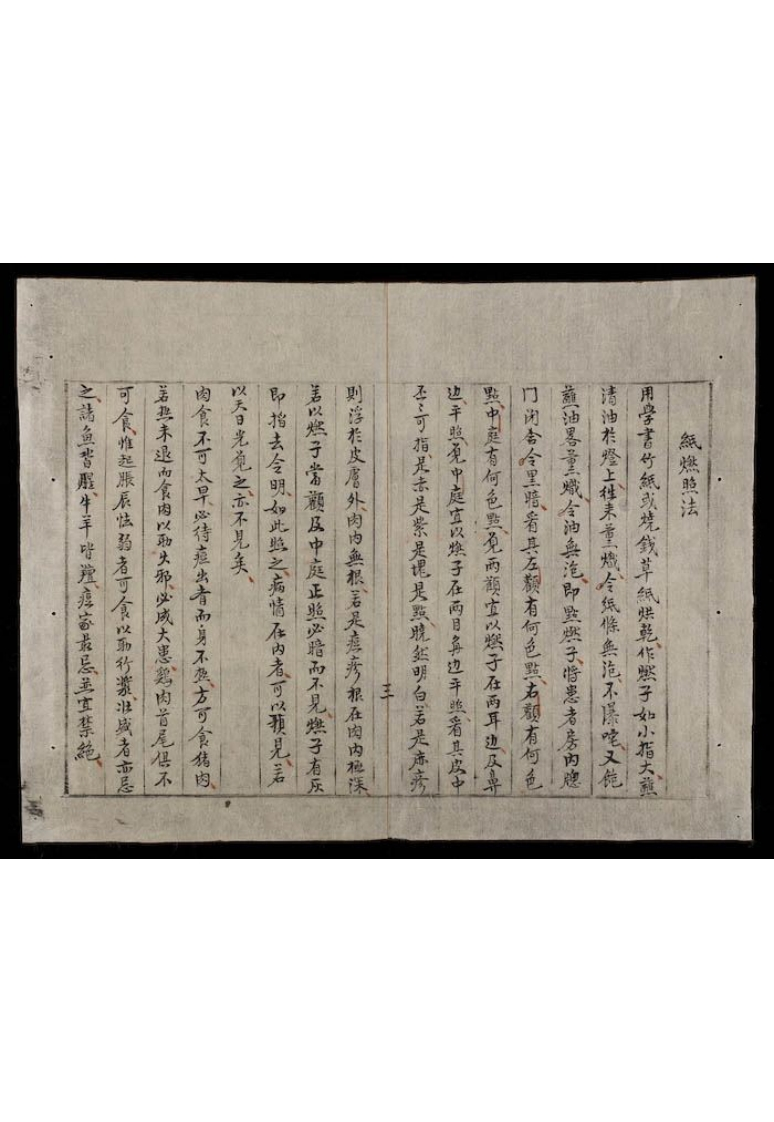 紙燃照法
用學書竹紙或燒錢草紙烘乾作燃子如小指大蘸
清油於燈上往來熏熾令紙條無泡不爆咤又飽
蘸油畧熏熾令油無泡即點燃子將患者房內
門閉合令黑暗看其左顴有何色點右顴有何色
點中庭有何色點覓兩顴宜以燃子在兩耳边及鼻
边平照覓中庭宜以燃子在兩目鼻边平照看其皮中
歷歷可指是赤是紫是塊是點曉然明白若是麻疹
則浮於皮膚外肉內無根若是痘疹根在肉內極深
若以燃子當顴及中庭正照必暗而不見燃子有灰
即指去令明如此照之病情在內者可以預見若
以天日光覓之亦不見矣
肉食不可太早必待痘出者而身不熱方可食猪肉
若熱未退而食肉以助火邪必成大患鷄肉首尾俱不
可食惟起脹辰怯弱者可食以助行漿壯盛者亦忌
之諸魚皆腥牛羊皆羶痘家最忌並宜禁絕
三